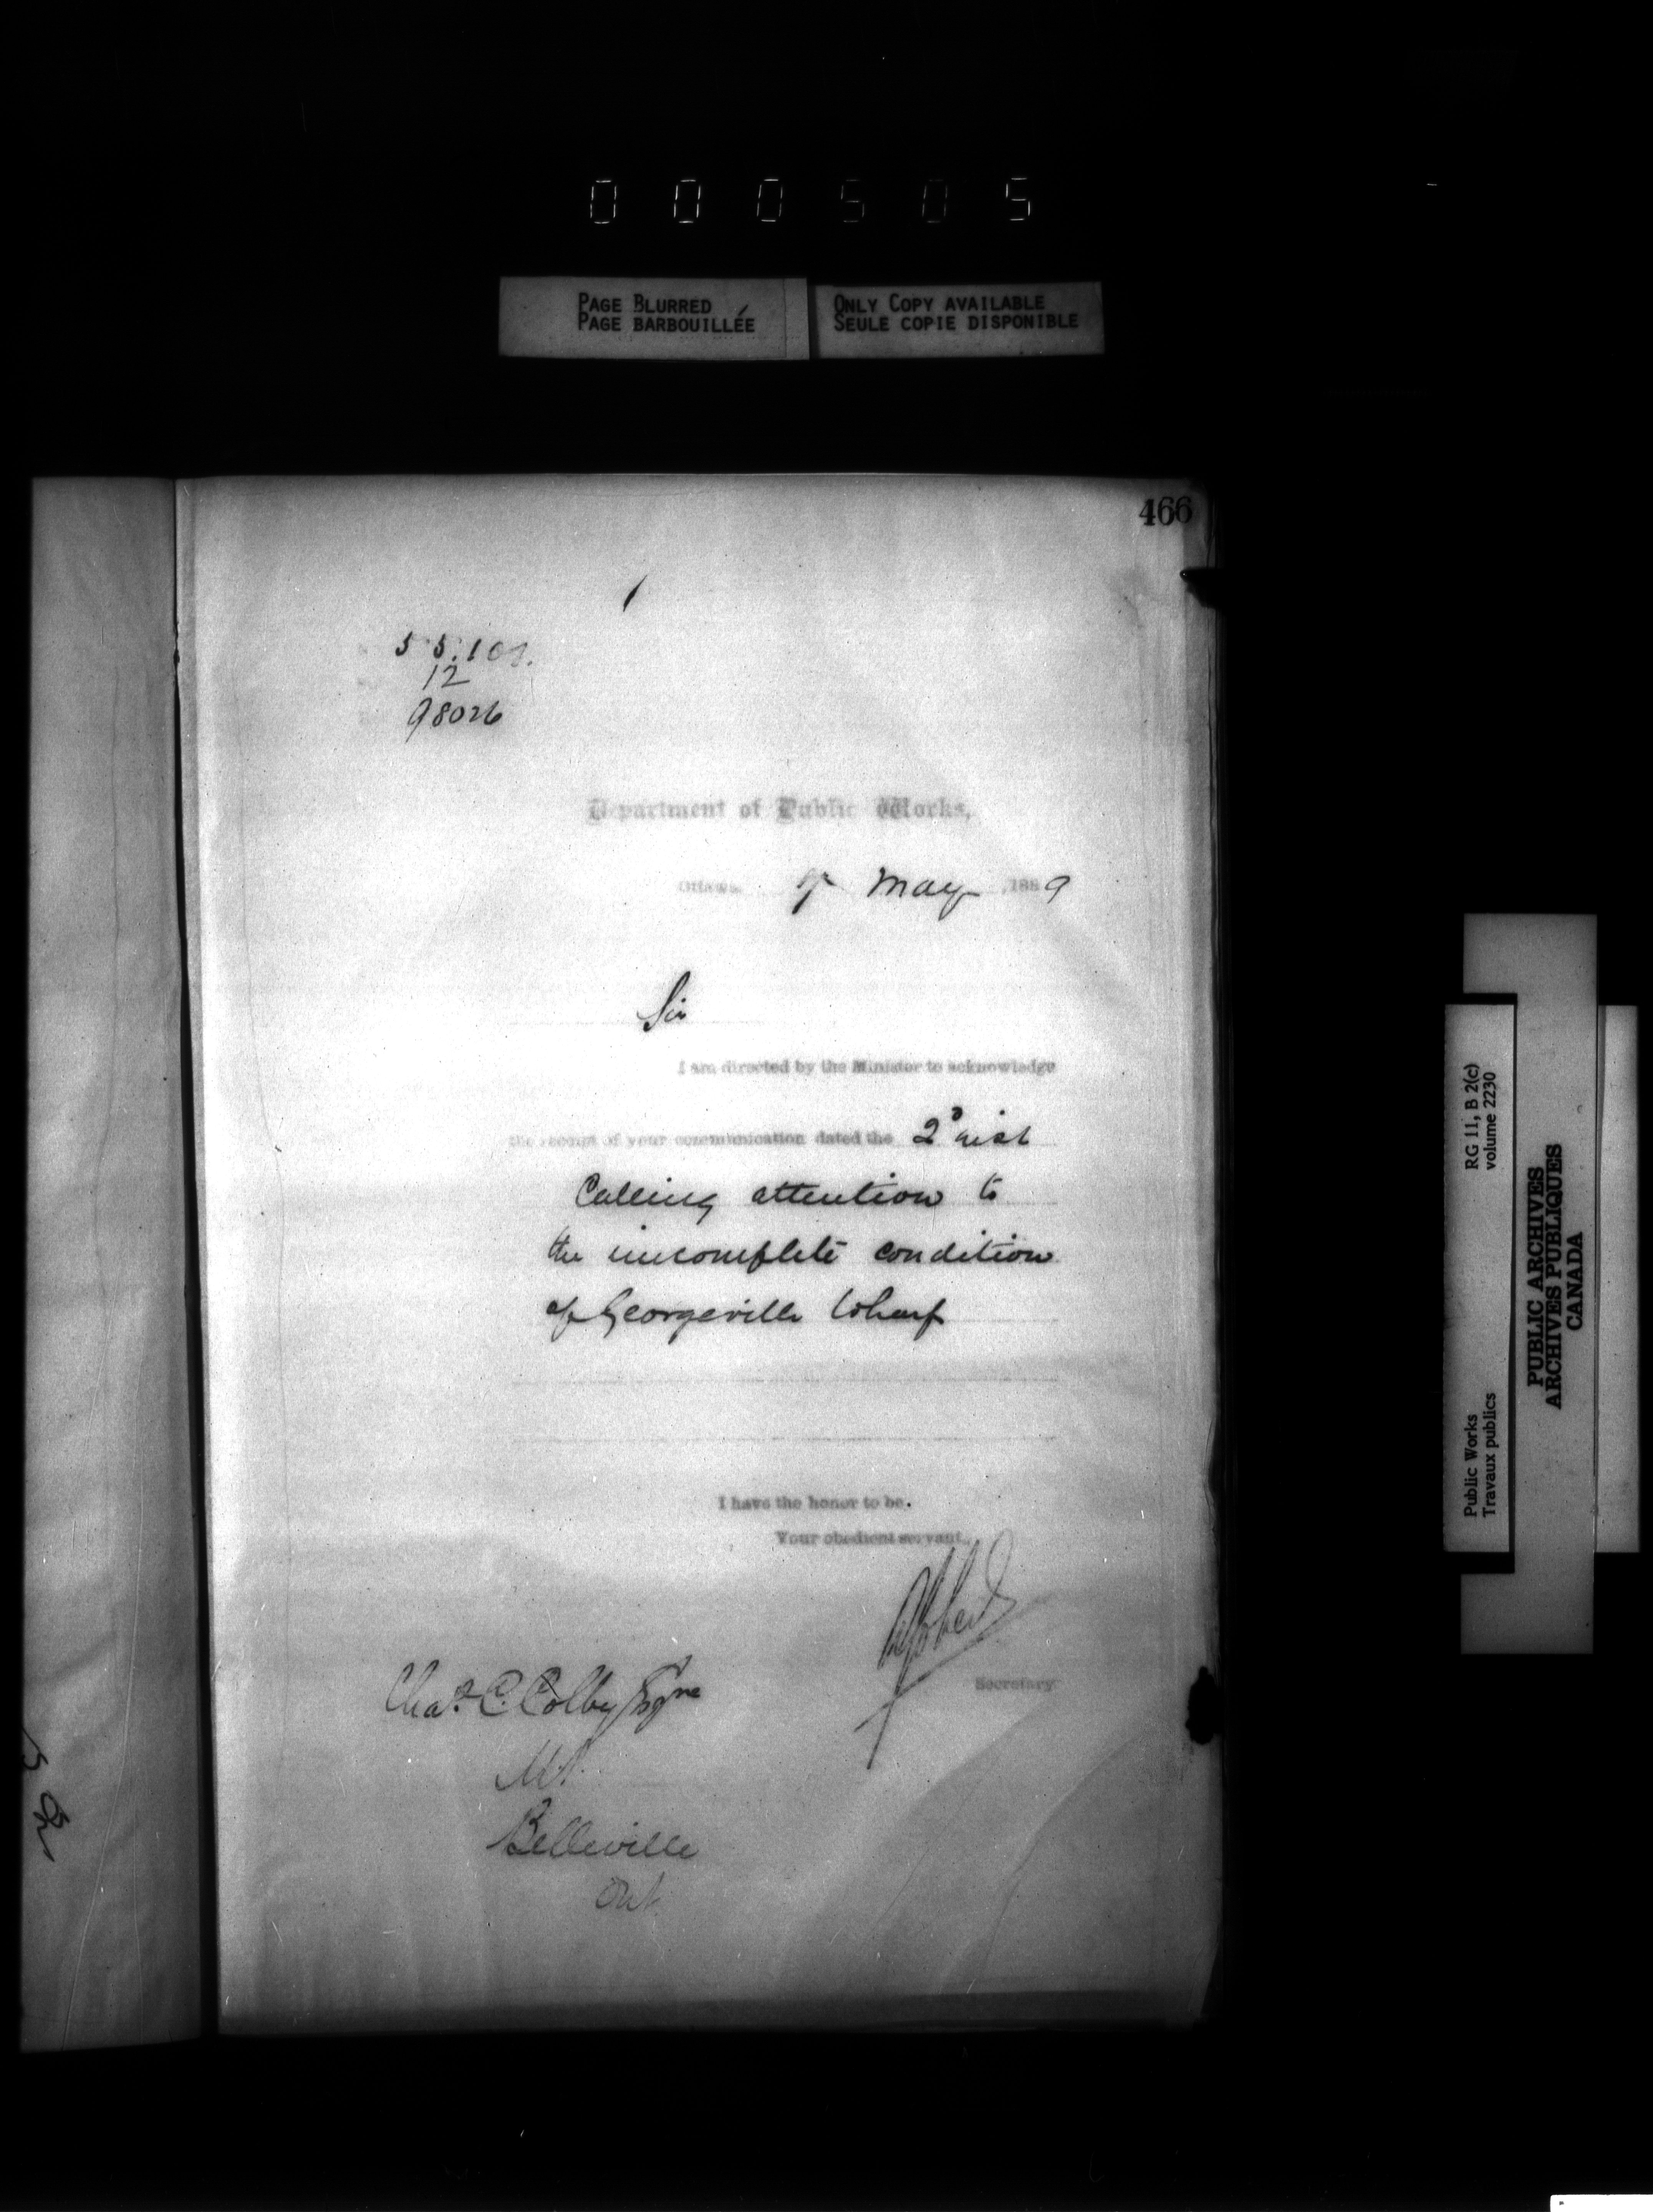 000505
PAGE BLURRED
PAGE BARBOUILLÉE
ONLY COPY AVAILABLE
SEULE COPIE DISPONIBLE
466
12
98026
Department of Public Works,
Ottawa May 1889
Sir
I am directed by the Minister to acknowledge
the receipt of your communication dated the 2d inst
Calling attention to
the incomplete condition
of Georgeville Wharf
I have the honor to be.
Your obedient servant,
Secretary
Chas. C. Colby Esqre
Belleville
Ont.
Public Works
Travaux publics
RG 11, B 2(c)
volume 2230
PUBLIC ARCHIVES
ARCHIVES PUBLIQUES
CANADA